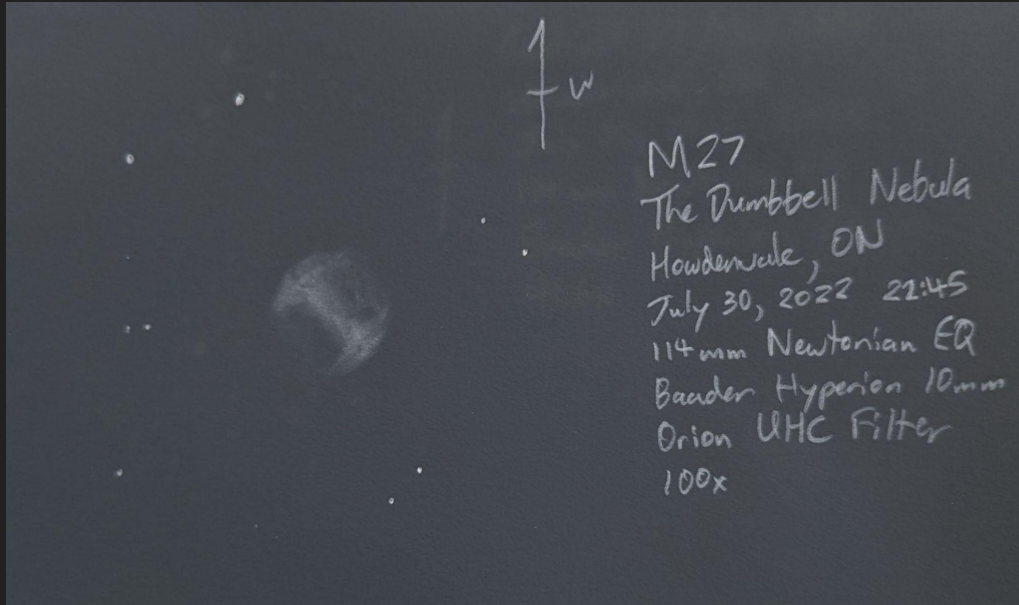 W
M27
The Dumbbell Nebula
Howdenvale, ON
July 30, 2022 22:45
114mm Newtonian EQ
Baader Hyperion 10mm
Orion UHC Filter
100x